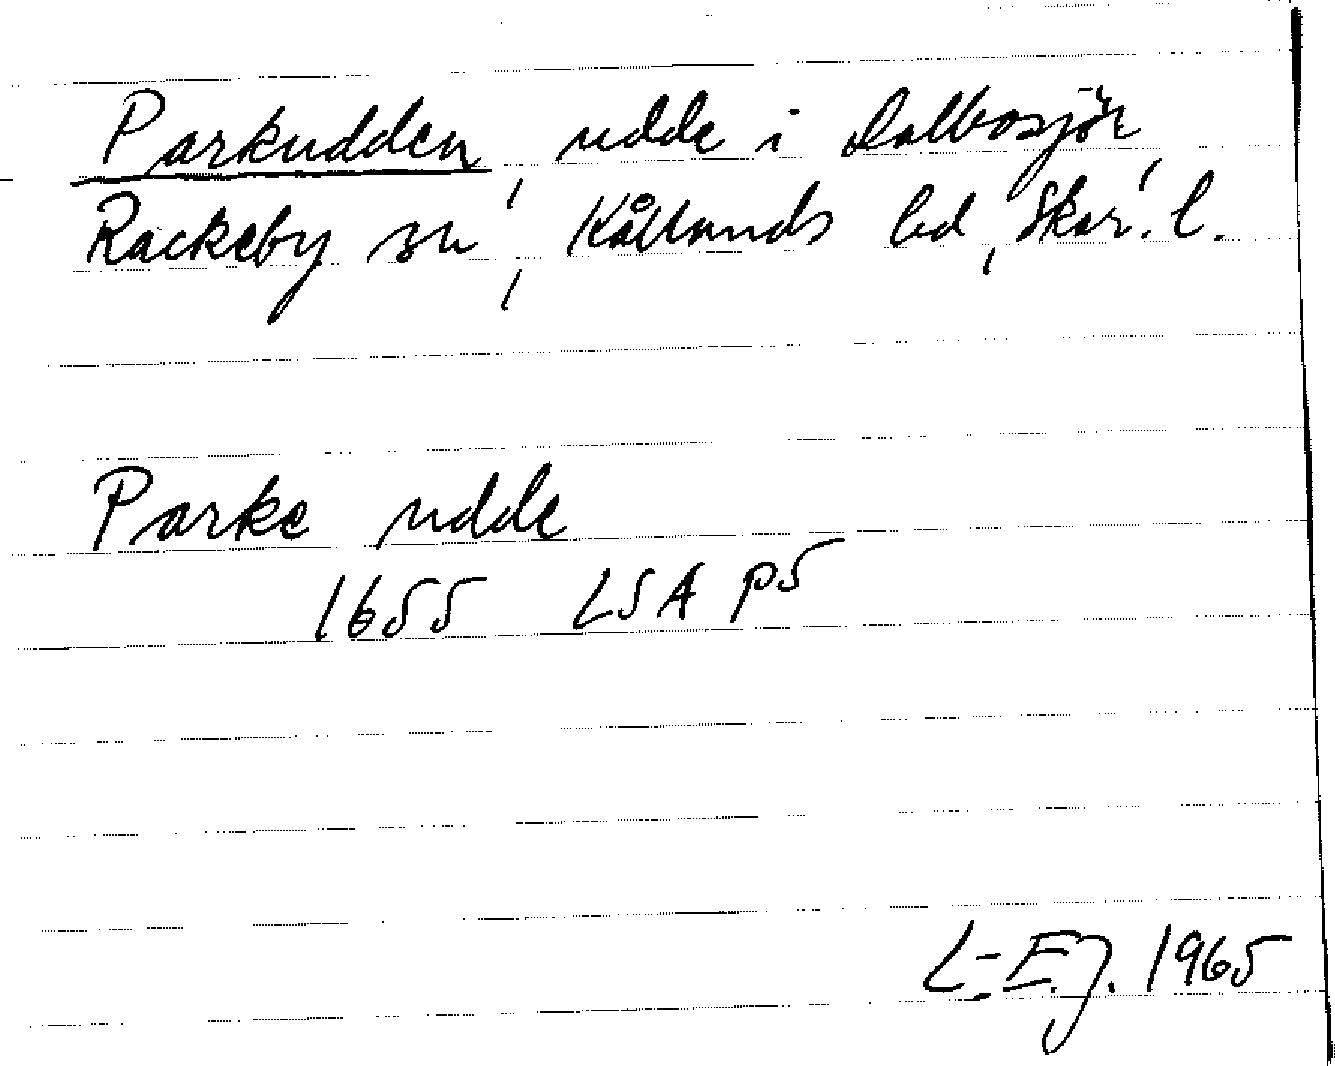 Parkudden, udde i Dalbosjön,
Rackeby sn, Kållands hd, Skar. l.
Parke udde
1655 LSA P5
L-E.J. 1965